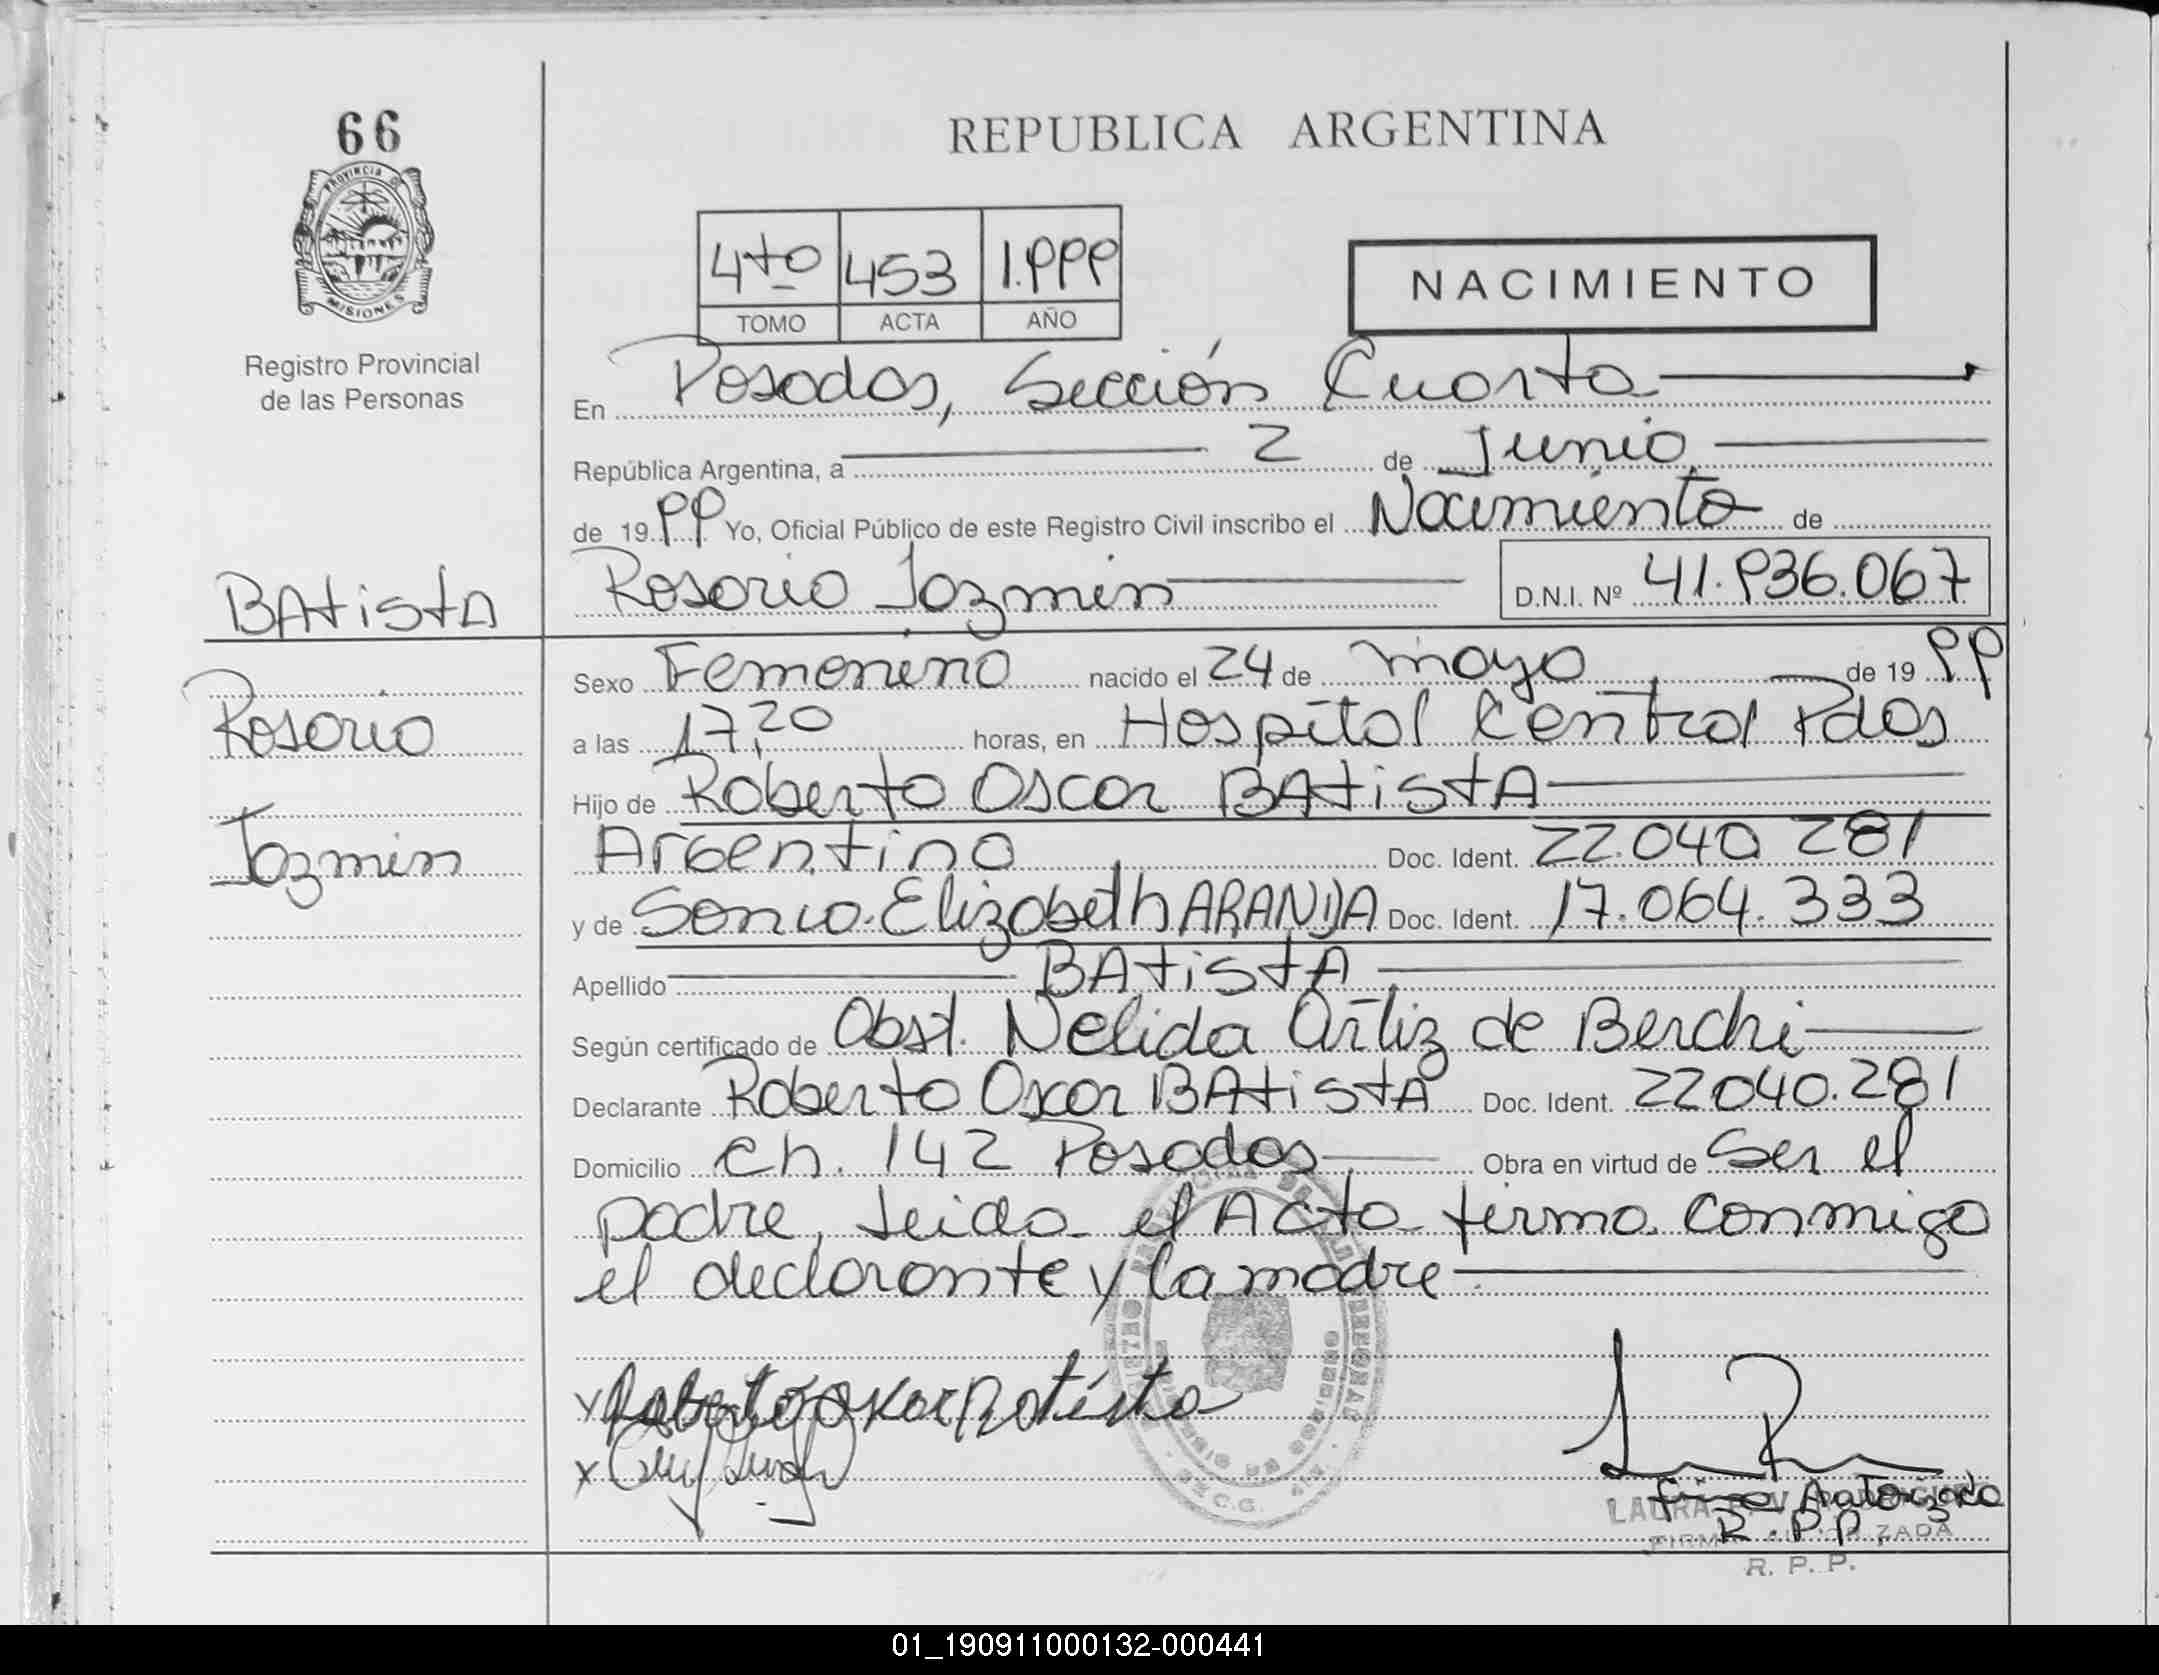 66
PROVINCIA DE
MISIONES
Registro Provincial
de las Personas
REPUBLICA ARGENTINA
4to 453 1.999
TOMO ACTA AÑO
NACIMIENTO
En Posadas, Sección Cuarta
República Argentina, a 2 de Junio
de 1999 Yo, Oficial Público de este Registro Civil inscribo el Nacimiento de
Rosario Jazmin D.N.I. Nº 41.936.067
BAtistA
Rosario
Jazmin
Sexo Femenino nacido el 24 de mayo de 1999
a las 17,20 horas, en Hospital Central Pdas
Hijo de Roberto Oscar BAtistA
Argentino Doc. Ident. 22.040 281
y de Sonia Elizabeth ARANDA Doc. Ident. 17.064.333
Apellido BAtistA
Según certificado de Obst. Nelida Ortiz de Berchi
Declarante Roberto Oscar BAtistA Doc. Ident. 22040.281
Domicilio Ch. 142 Posadas Obra en virtud de Ser el
padre, Leida el Acta firma conmigo
el declarante y la madre
Roberto Oscar Batista
Firma Autorizada
R.P.P
LAURA
FIRMA AUTORIZADA
R. P. P.
01_190911000132-000441